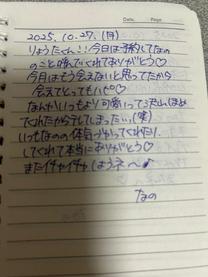 Date . Page
2025. 10. 27. (月)
りょうたくん!! 今日は予約してなの
のこと呼んでくれてありがとう♡
今月はもう会えないと思ってたから
会えてとってもハピ♡
なんかいつもより可愛いって沢山ほめ
てくれたからテレしまったぃ、(笑)
いつもなのの体気づかってくれたり、
してくれて本当にありがとう♡
またイチャイチャしようネ〜♪
なの